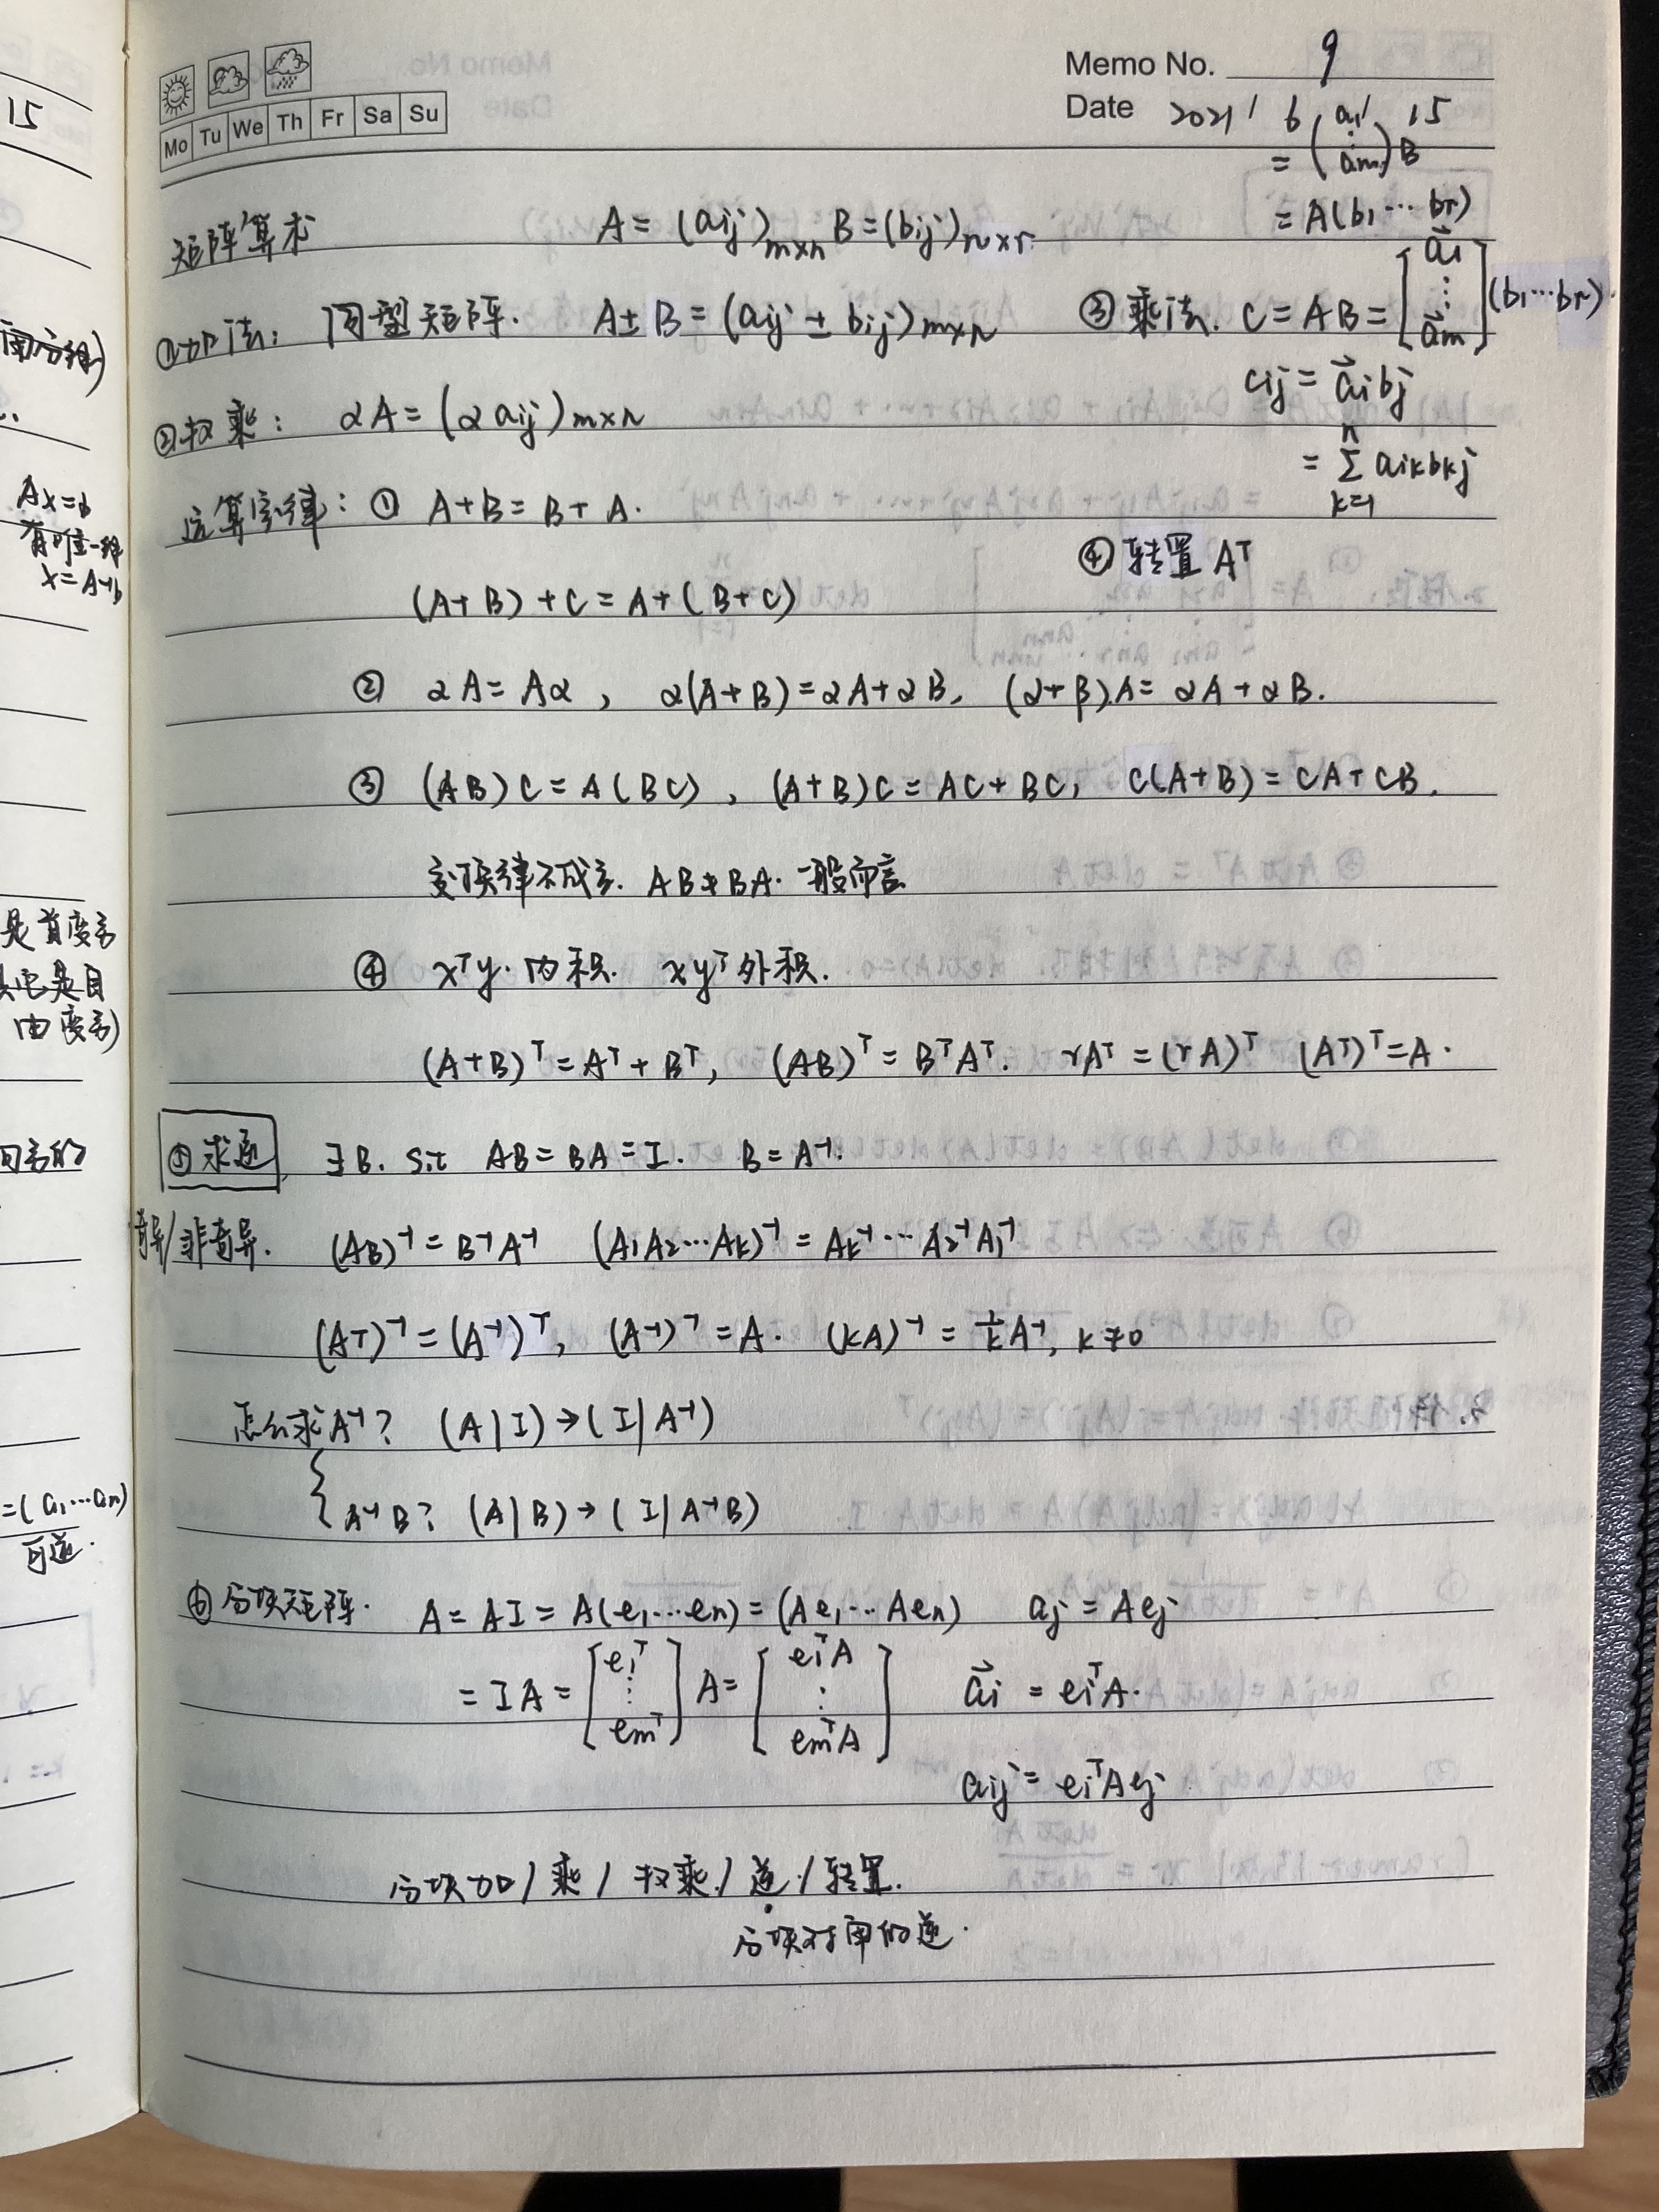 15
Ax=b
有唯一解
x=A⁻¹b
是首变量
其它是自
由变量)
=(a₁⋯aₙ)
可逆.
Mo Tu We Th Fr Sa Su
Memo No. 9
Date 2021 / 6 / 15
矩阵算术 A=(aij)m×n B=(bij)n×r
= (a⃗₁ ⋮ a⃗m) B
= A(b₁⋯br)
①加法: 同型矩阵. A±B=(aij±bij)m×n
③乘法. C=AB=[a⃗₁ ⋮ a⃗m](b₁⋯br).
cij = a⃗ibj
= Σ(k=1→n) aikbkj
②数乘: αA=(αaij)m×n
④转置 Aᵀ
运算定律: ① A+B=B+A.
(A+B)+C=A+(B+C)
② αA=Aα, α(A+B)=αA+αB, (α+β)A=αA+αB.
③ (AB)C=A(BC), (A+B)C=AC+BC, C(A+B)=CA+CB.
交换律不成立. AB≠BA. 一般而言
④ xᵀy. 内积. xyᵀ 外积.
(A+B)ᵀ=Aᵀ+Bᵀ, (AB)ᵀ=BᵀAᵀ. rAᵀ=(rA)ᵀ (Aᵀ)ᵀ=A.
⑤求逆 ∃B. s.t AB=BA=I. B=A⁻¹.
奇异/非奇异. (AB)⁻¹=B⁻¹A⁻¹ (A₁A₂⋯Ak)⁻¹=Ak⁻¹⋯A₂⁻¹A₁⁻¹
(Aᵀ)⁻¹=(A⁻¹)ᵀ, (A⁻¹)⁻¹=A. (kA)⁻¹=1/k A⁻¹, k≠0
怎么求A⁻¹? (A|I)→(I|A⁻¹)
{ A⁻¹B? (A|B)→(I|A⁻¹B)
⑥分块矩阵. A=AI=A(e₁⋯en)=(Ae₁⋯Aen) aj=Aej
=IA=[e₁ᵀ ⋮ emᵀ]A=[e₁ᵀA ⋮ emᵀA] a⃗i = eiᵀA.
aij=eiᵀAej
分块加/乘/数乘/逆/转置.
分块对角的逆.